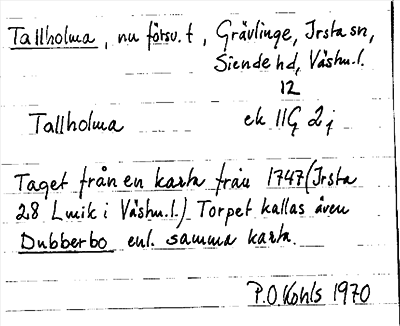 Tallholma, nu försv. t, Grävlinge, Irsta sn,
Siende hd, Västm. l.
12
Tallholma ek 11G 2j
Taget från en karta från 1747 (Irsta
28 Lmik i Västm. l.) Torpet kallas även
Dubberbo enl. samma karta.
P.O. Kohls 1970